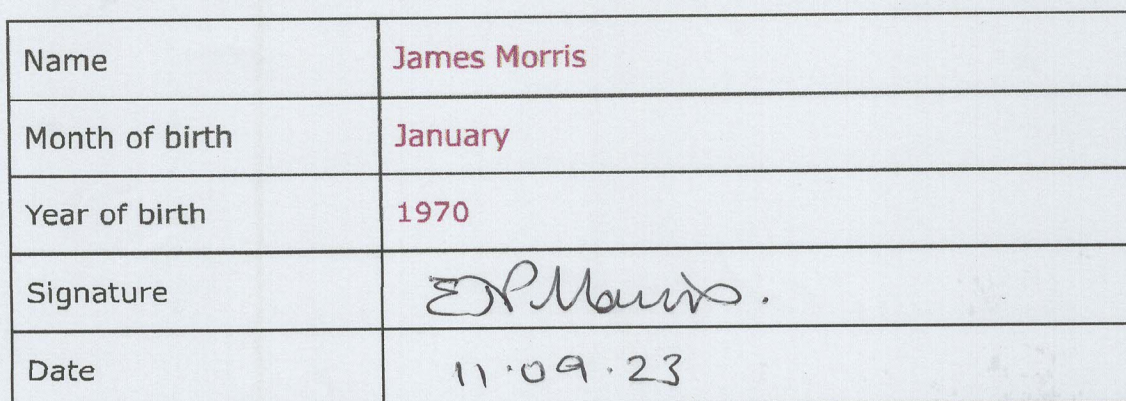 Name James Morris
Month of birth January
Year of birth 1970
Signature Morris.
Date 11.09.23